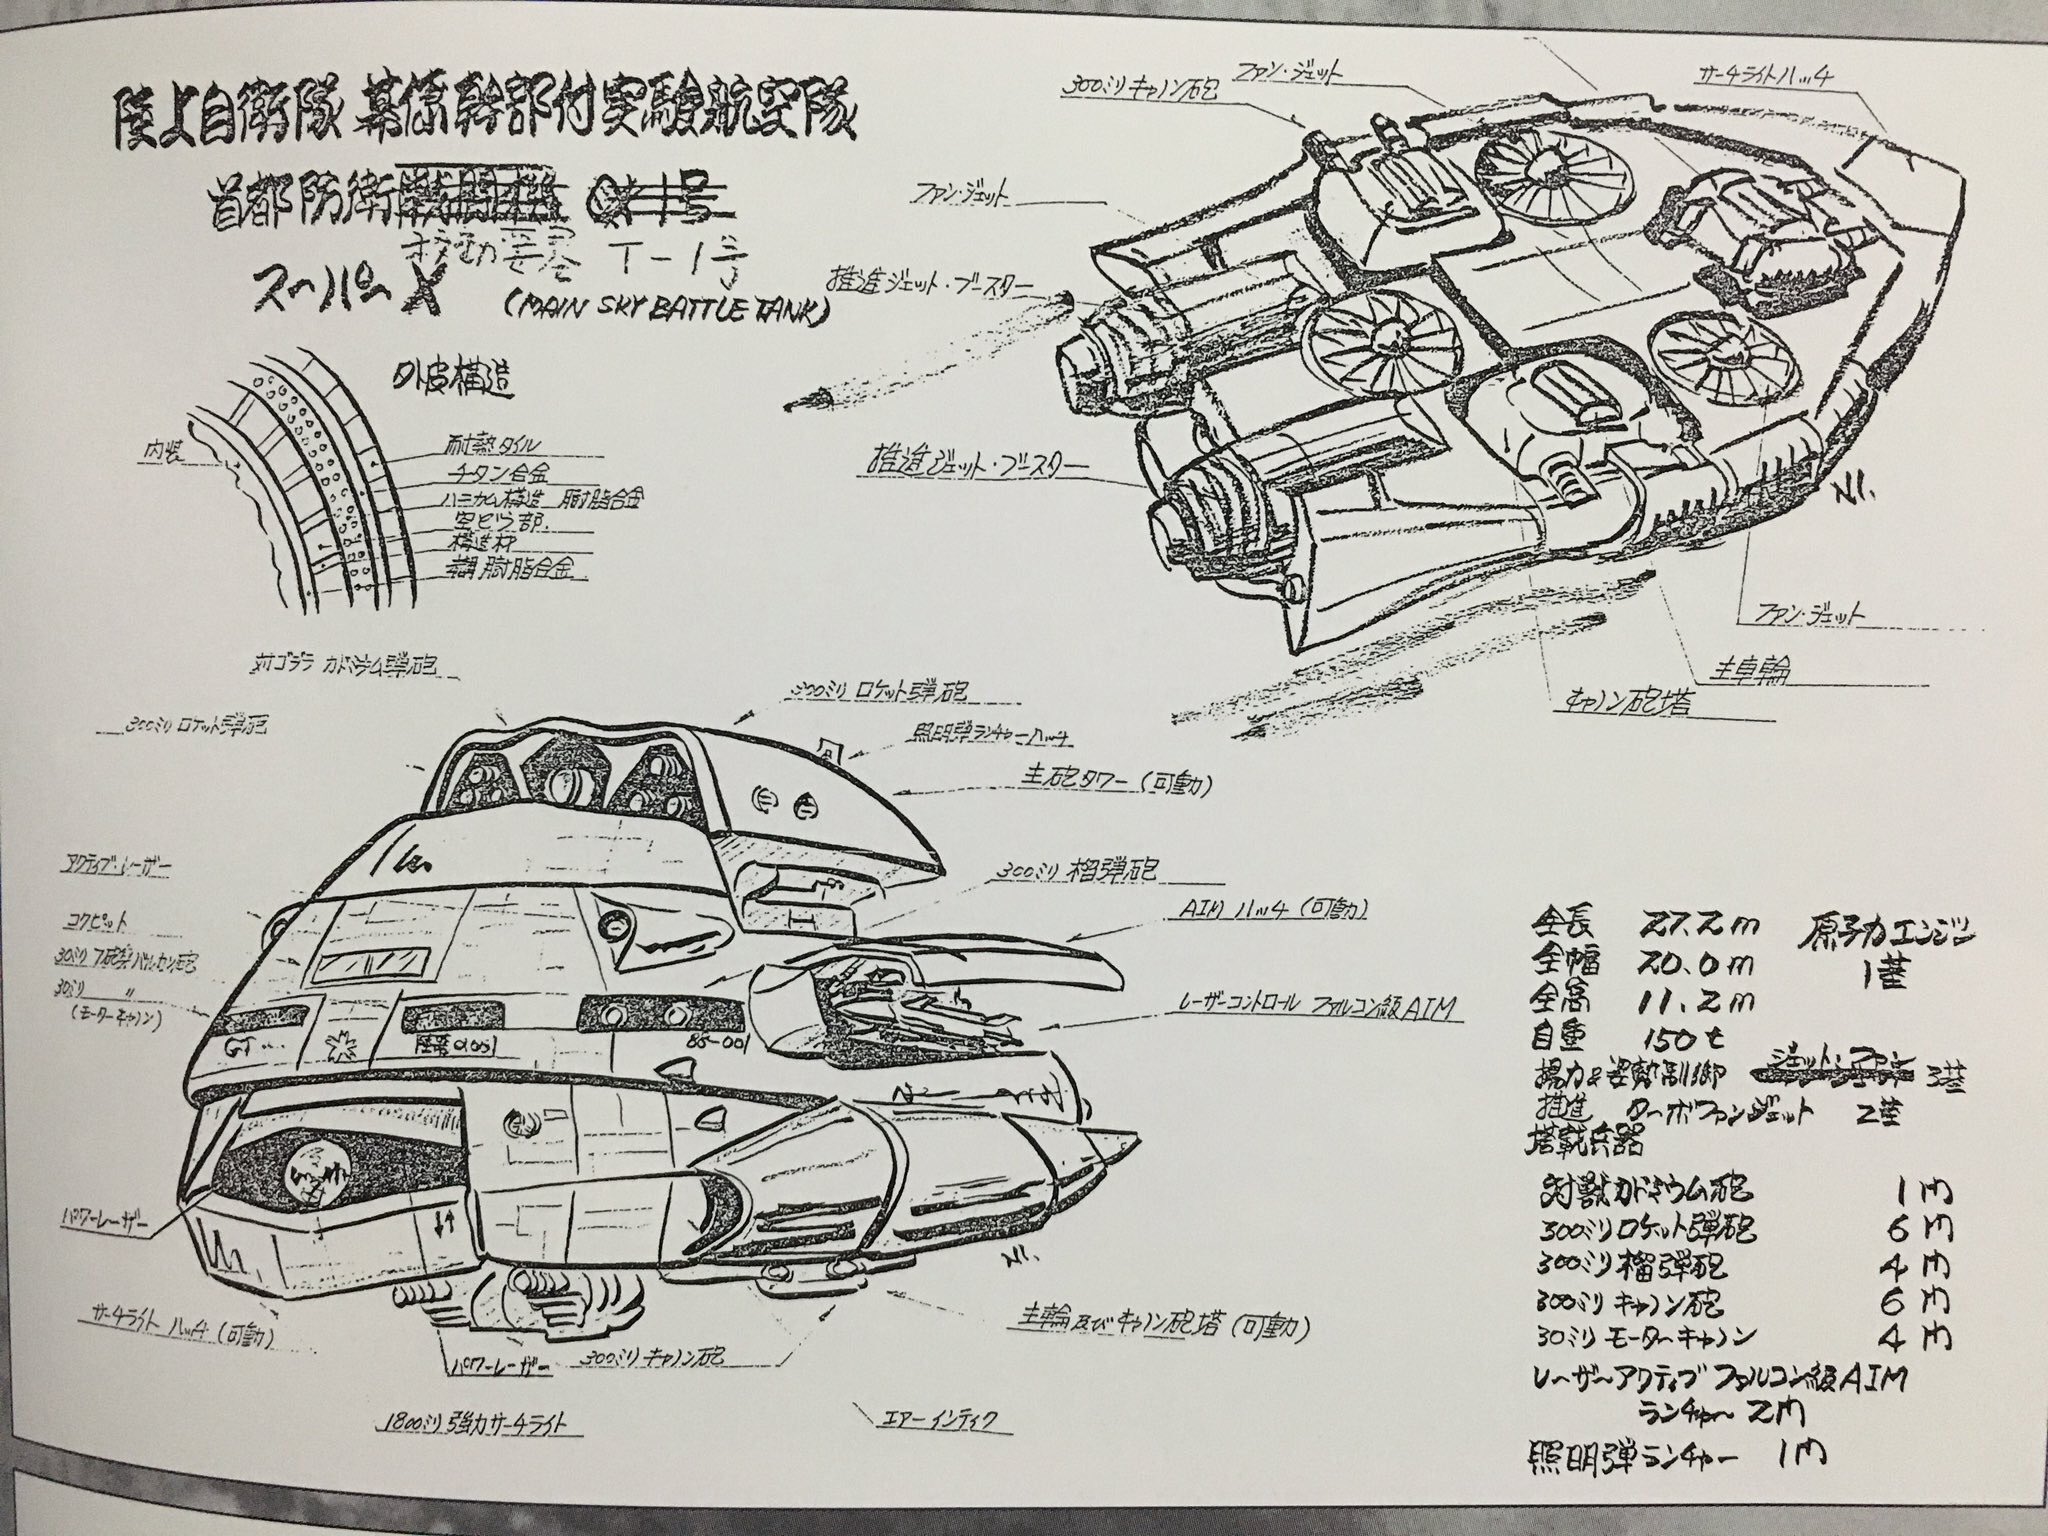 陸上自衛隊 幕僚幹部付実験航空隊
首都防衛戦闘機
移動要塞 T-1号
スーパーX (MAIN SKY BATTLE TANK)
外皮構造
内装
耐熱タイル
チタン合金
ハニカム構造 樹脂合金
空どう部
構造材
樹脂合金
300ミリキャノン砲
ファン・ジェット
サーチライトハッチ
ファン・ジェット
推進ジェット・ブースター
推進ジェット・ブースター
N1.
ファン・ジェット
主車輪
キャノン砲塔
対ゴジラ カドミウム弾砲
300ミリ ロケット弾砲
300ミリ ロケット弾砲
照明弾ランチャーハッチ
主砲タワー(可動)
300ミリ 榴弾砲
AIM ハッチ(可動)
レーザーコントロール ファルコン級AIM
アクティブ・レーザー
コクピット
30ミリ バルカン砲
30ミリ 〃
(モーターキャノン)
85-001
パワーレーザー
N1.
サーチライト ハッチ(可動)
パワーレーザー
300ミリ キャノン砲
主輪及びキャノン砲塔(可動)
1800ミリ強力サーチライト
エアーインティク
全長 27.2m 原子力エンジン
全幅 20.0m 1基
全高 11.2m
自重 150t
揚力&姿勢制御 ジェット・ファン 3基
推進 ターボファンジェット 2基
塔載兵器
対獣カドミウム砲 1門
300ミリロケット弾砲 6門
300ミリ榴弾砲 4門
300ミリキャノン砲 6門
30ミリモーターキャノン 4門
レーザーアクティブ ファルコン級AIM
ランチャー 2門
照明弾ランチャー 1門